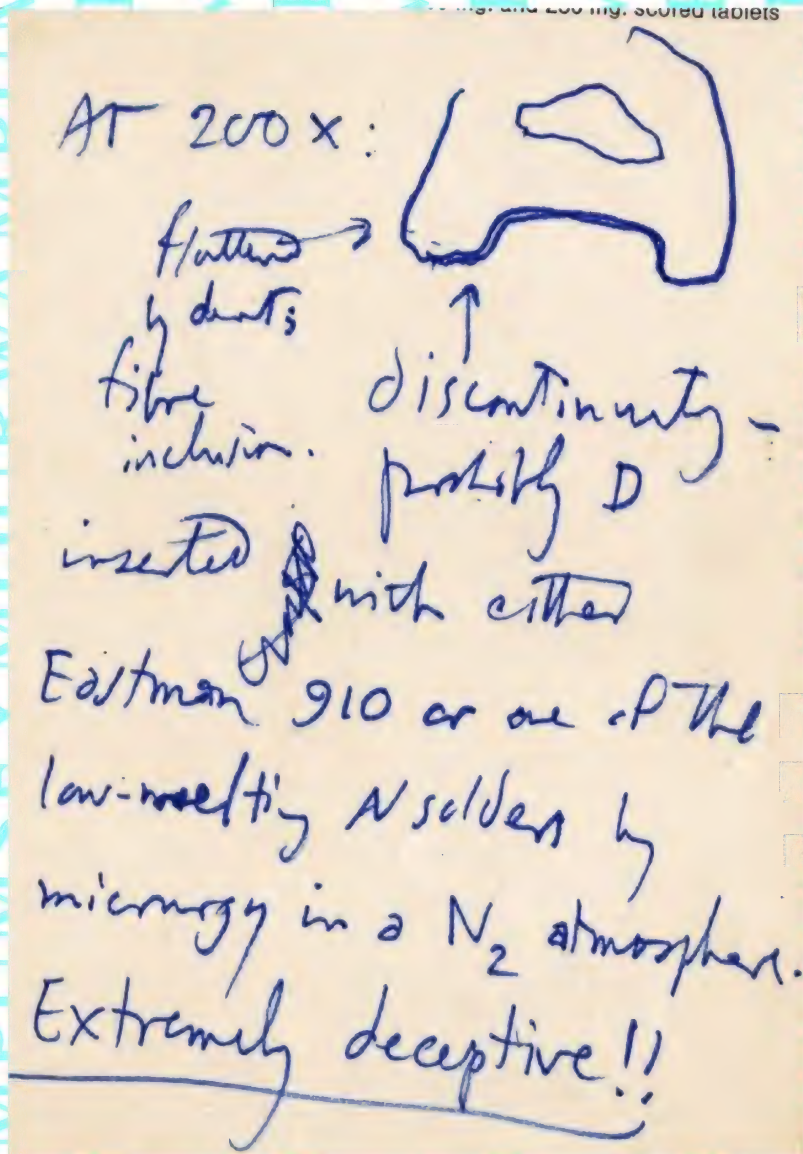 mg. and 250 mg. scored tablets
AT 200 x:
flattened
by dents;
fibre
inclusion.
discontinuity -
probably D
inserted with either
Eastman 910 or one of the
low-melting N solders by
micrurgy in a N2 atmosphere.
Extremely deceptive!!